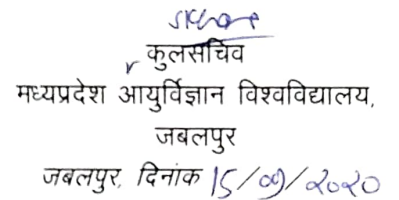 कुलसचिव
मध्यप्रदेश आयुर्विज्ञान विश्वविद्यालय,
जबलपुर
जबलपुर, दिनांक 15/09/2020